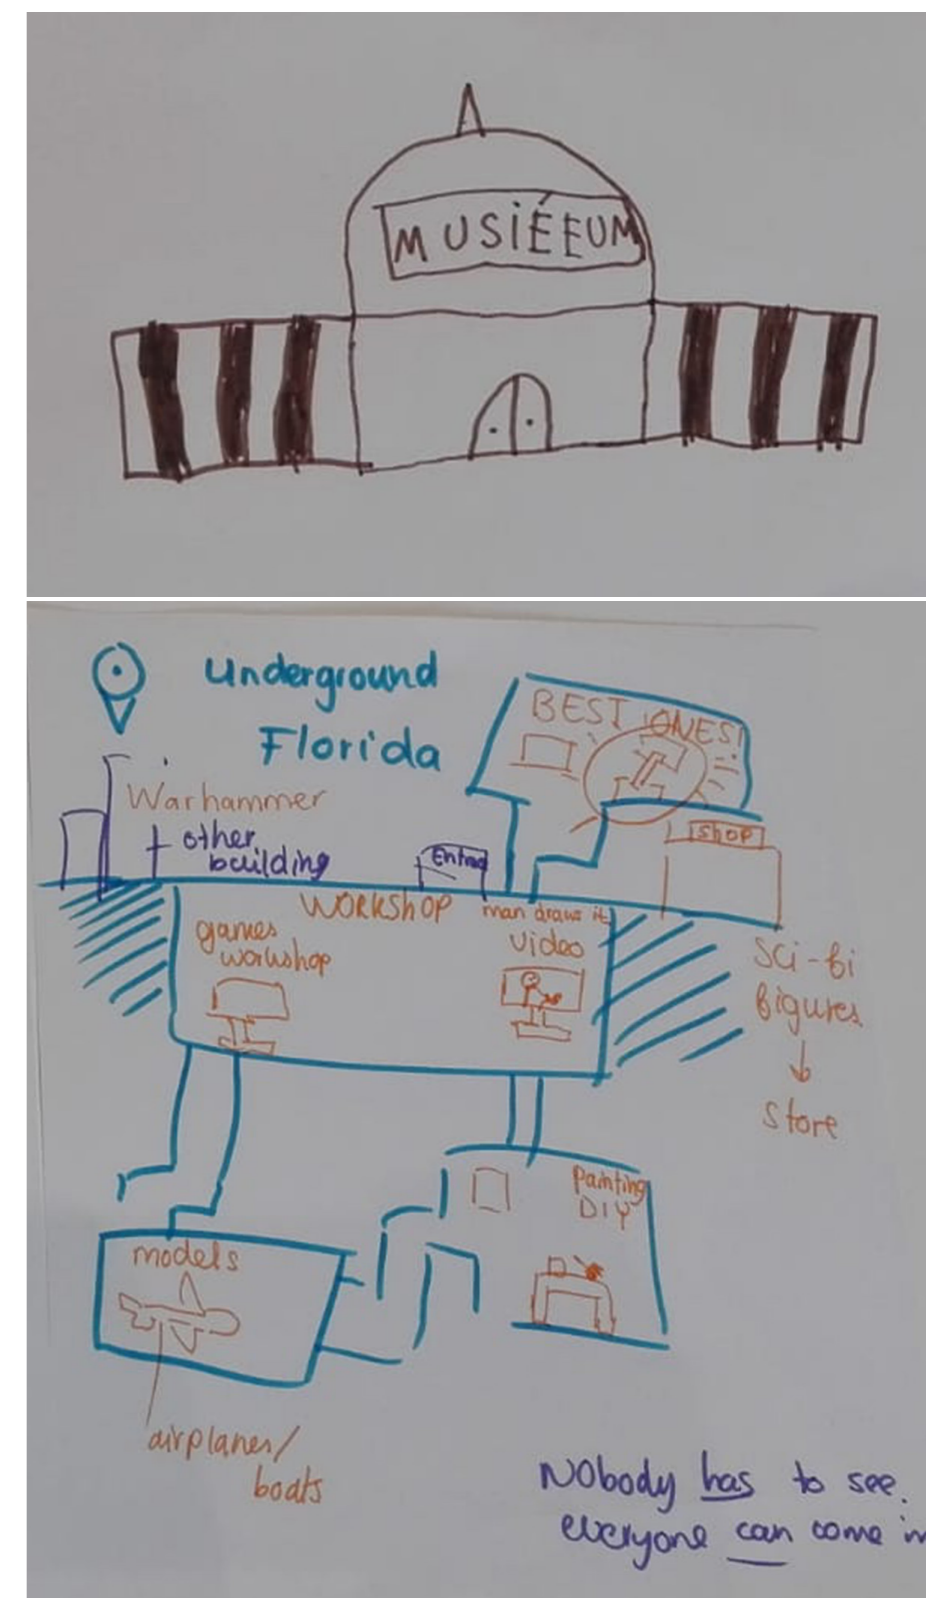 MUSIÉEUM
Underground
Florida
BEST ONES!
Warhammer
+ other
building
shop
WORKSHOP
man draws it
video
games
workshop
sci-fi
figures
store
painting
DIY
models
airplanes/
boats
Nobody has to see.
everyone can come in